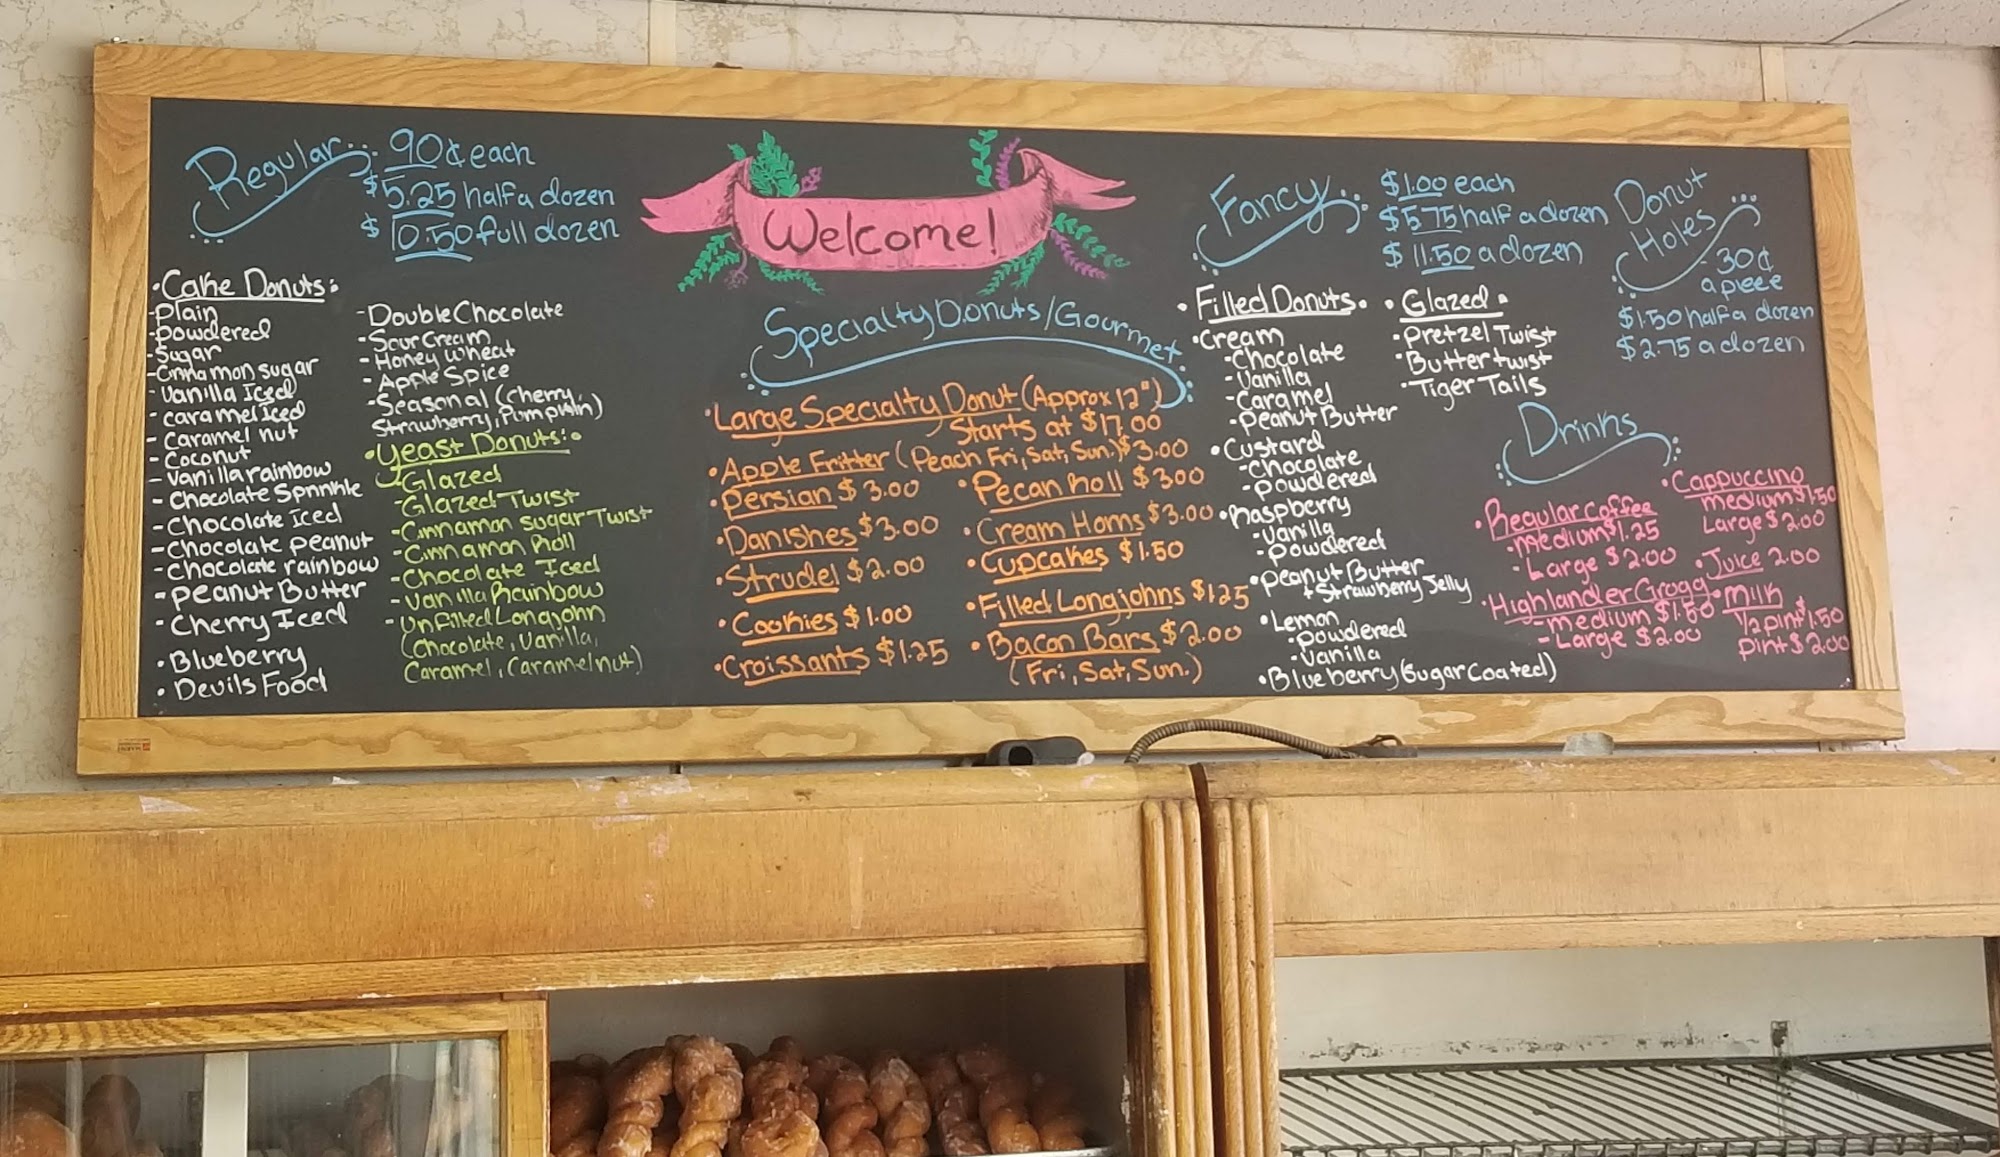 Regular...
90¢ each
$5.25 half a dozen
$10.50 full dozen
• Cake Donuts:
-Plain
-Powdered
-Sugar
-Cinnamon sugar
-Vanilla Iced
-caramel Iced
-Caramel nut
-Coconut
-Vanilla rainbow
-Chocolate Sprinkle
-Chocolate Iced
-Chocolate peanut
-Chocolate rainbow
-Peanut Butter
-Cherry Iced
•Blueberry
•Devils Food
-Double Chocolate
-Sour Cream
-Honey wheat
-Apple Spice
-Seasonal (Cherry,
Strawberry, Pumpkin)
•Yeast Donuts:
-Glazed
-Glazed Twist
-Cinnamon sugar Twist
-Cinnamon Roll
-Chocolate Iced
-Vanilla Rainbow
-Unfilled Longjohn
(Chocolate, Vanilla,
Caramel, Caramel nut)
Welcome!
Specialty Donuts/Gourmet
•Large Specialty Donut (Approx 12")
Starts at $17.00
•Apple Fritter (Peach Fri, Sat, Sun.) $3.00
•Persian $3.00
•Danishes $3.00
•Strudel $2.00
•Cookies $1.00
•Croissants $1.25
•Pecan Roll $3.00
•Cream Horns $3.00
•Cupcakes $1.50
•Filled Longjohns $1.25
•Bacon Bars $2.00
(Fri, Sat, Sun.)
Fancy...
$1.00 each
$5.75 half a dozen
$11.50 a dozen
•Filled Donuts•
•Cream
-Chocolate
-Vanilla
-Caramel
-Peanut Butter
•Custard
-Chocolate
-Powdered
•Raspberry
-Vanilla
-Powdered
•Peanut Butter
+ Strawberry Jelly
•Lemon
-Powdered
-Vanilla
•Blueberry (Sugar Coated)
•Glazed•
•Pretzel Twist
•Butter twist
•Tiger Tails
Donut
Holes...
30¢
a piece
$1.50 half a dozen
$2.75 a dozen
Drinks
•Regular coffee
•medium $1.25
-Large $2.00
•Highlander Grogg
-medium $1.50
-Large $2.00
•Cappuccino
medium $1.50
Large $2.00
•Juice 2.00
•Milk
1/2 pint $1.50
pint $2.00